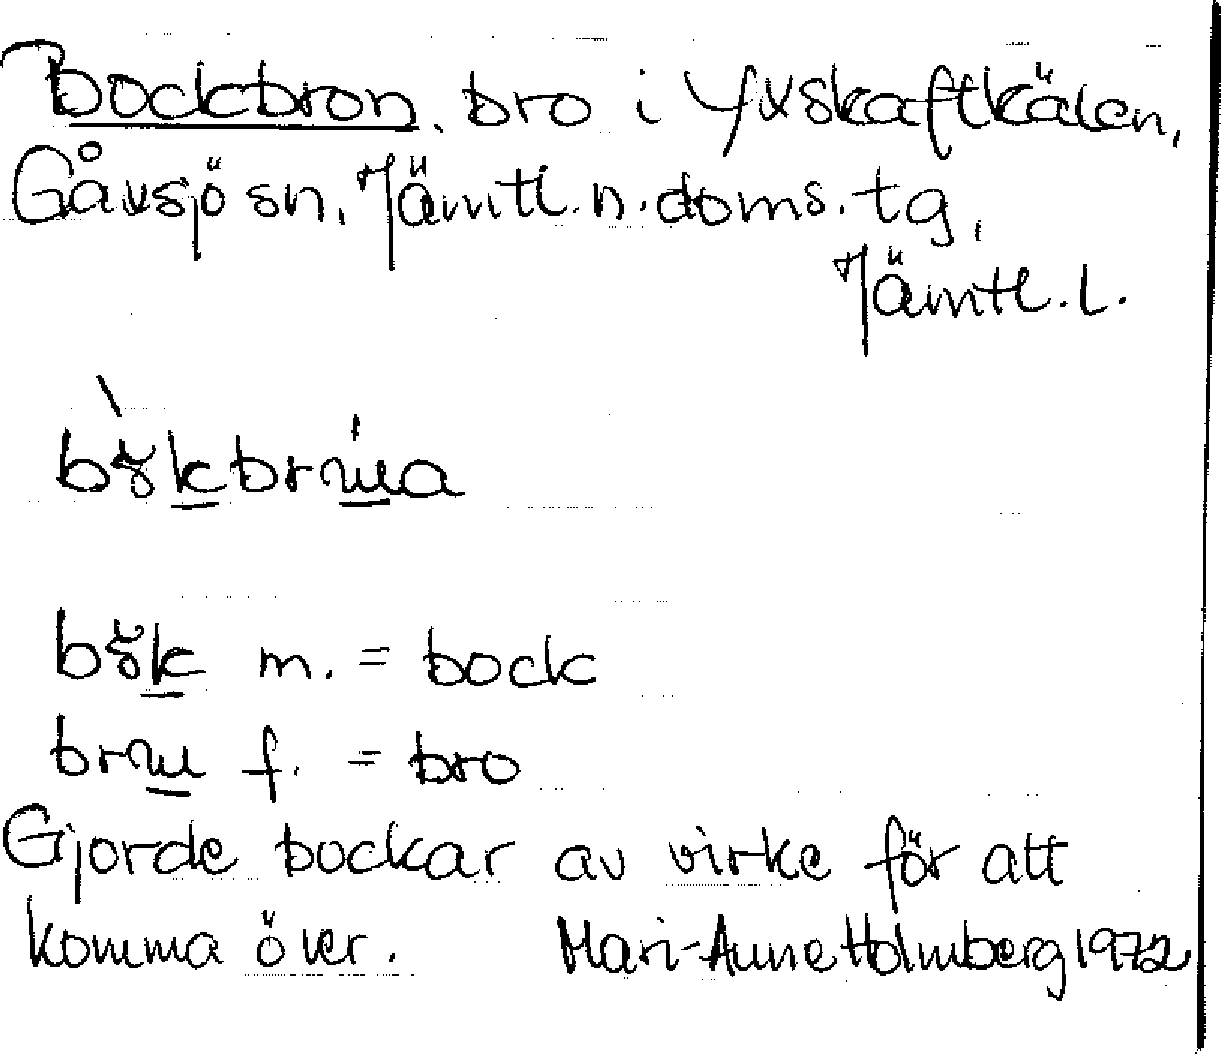 Bockbron, bro i Yxskaftkälen,
Gåxsjö sn, Jämtl. n. doms. tg,
Jämtl. l.
m. = bock
f. = bro
Gjorde bockar av virke för att
komma över. Mari-Anne Holmberg 1972